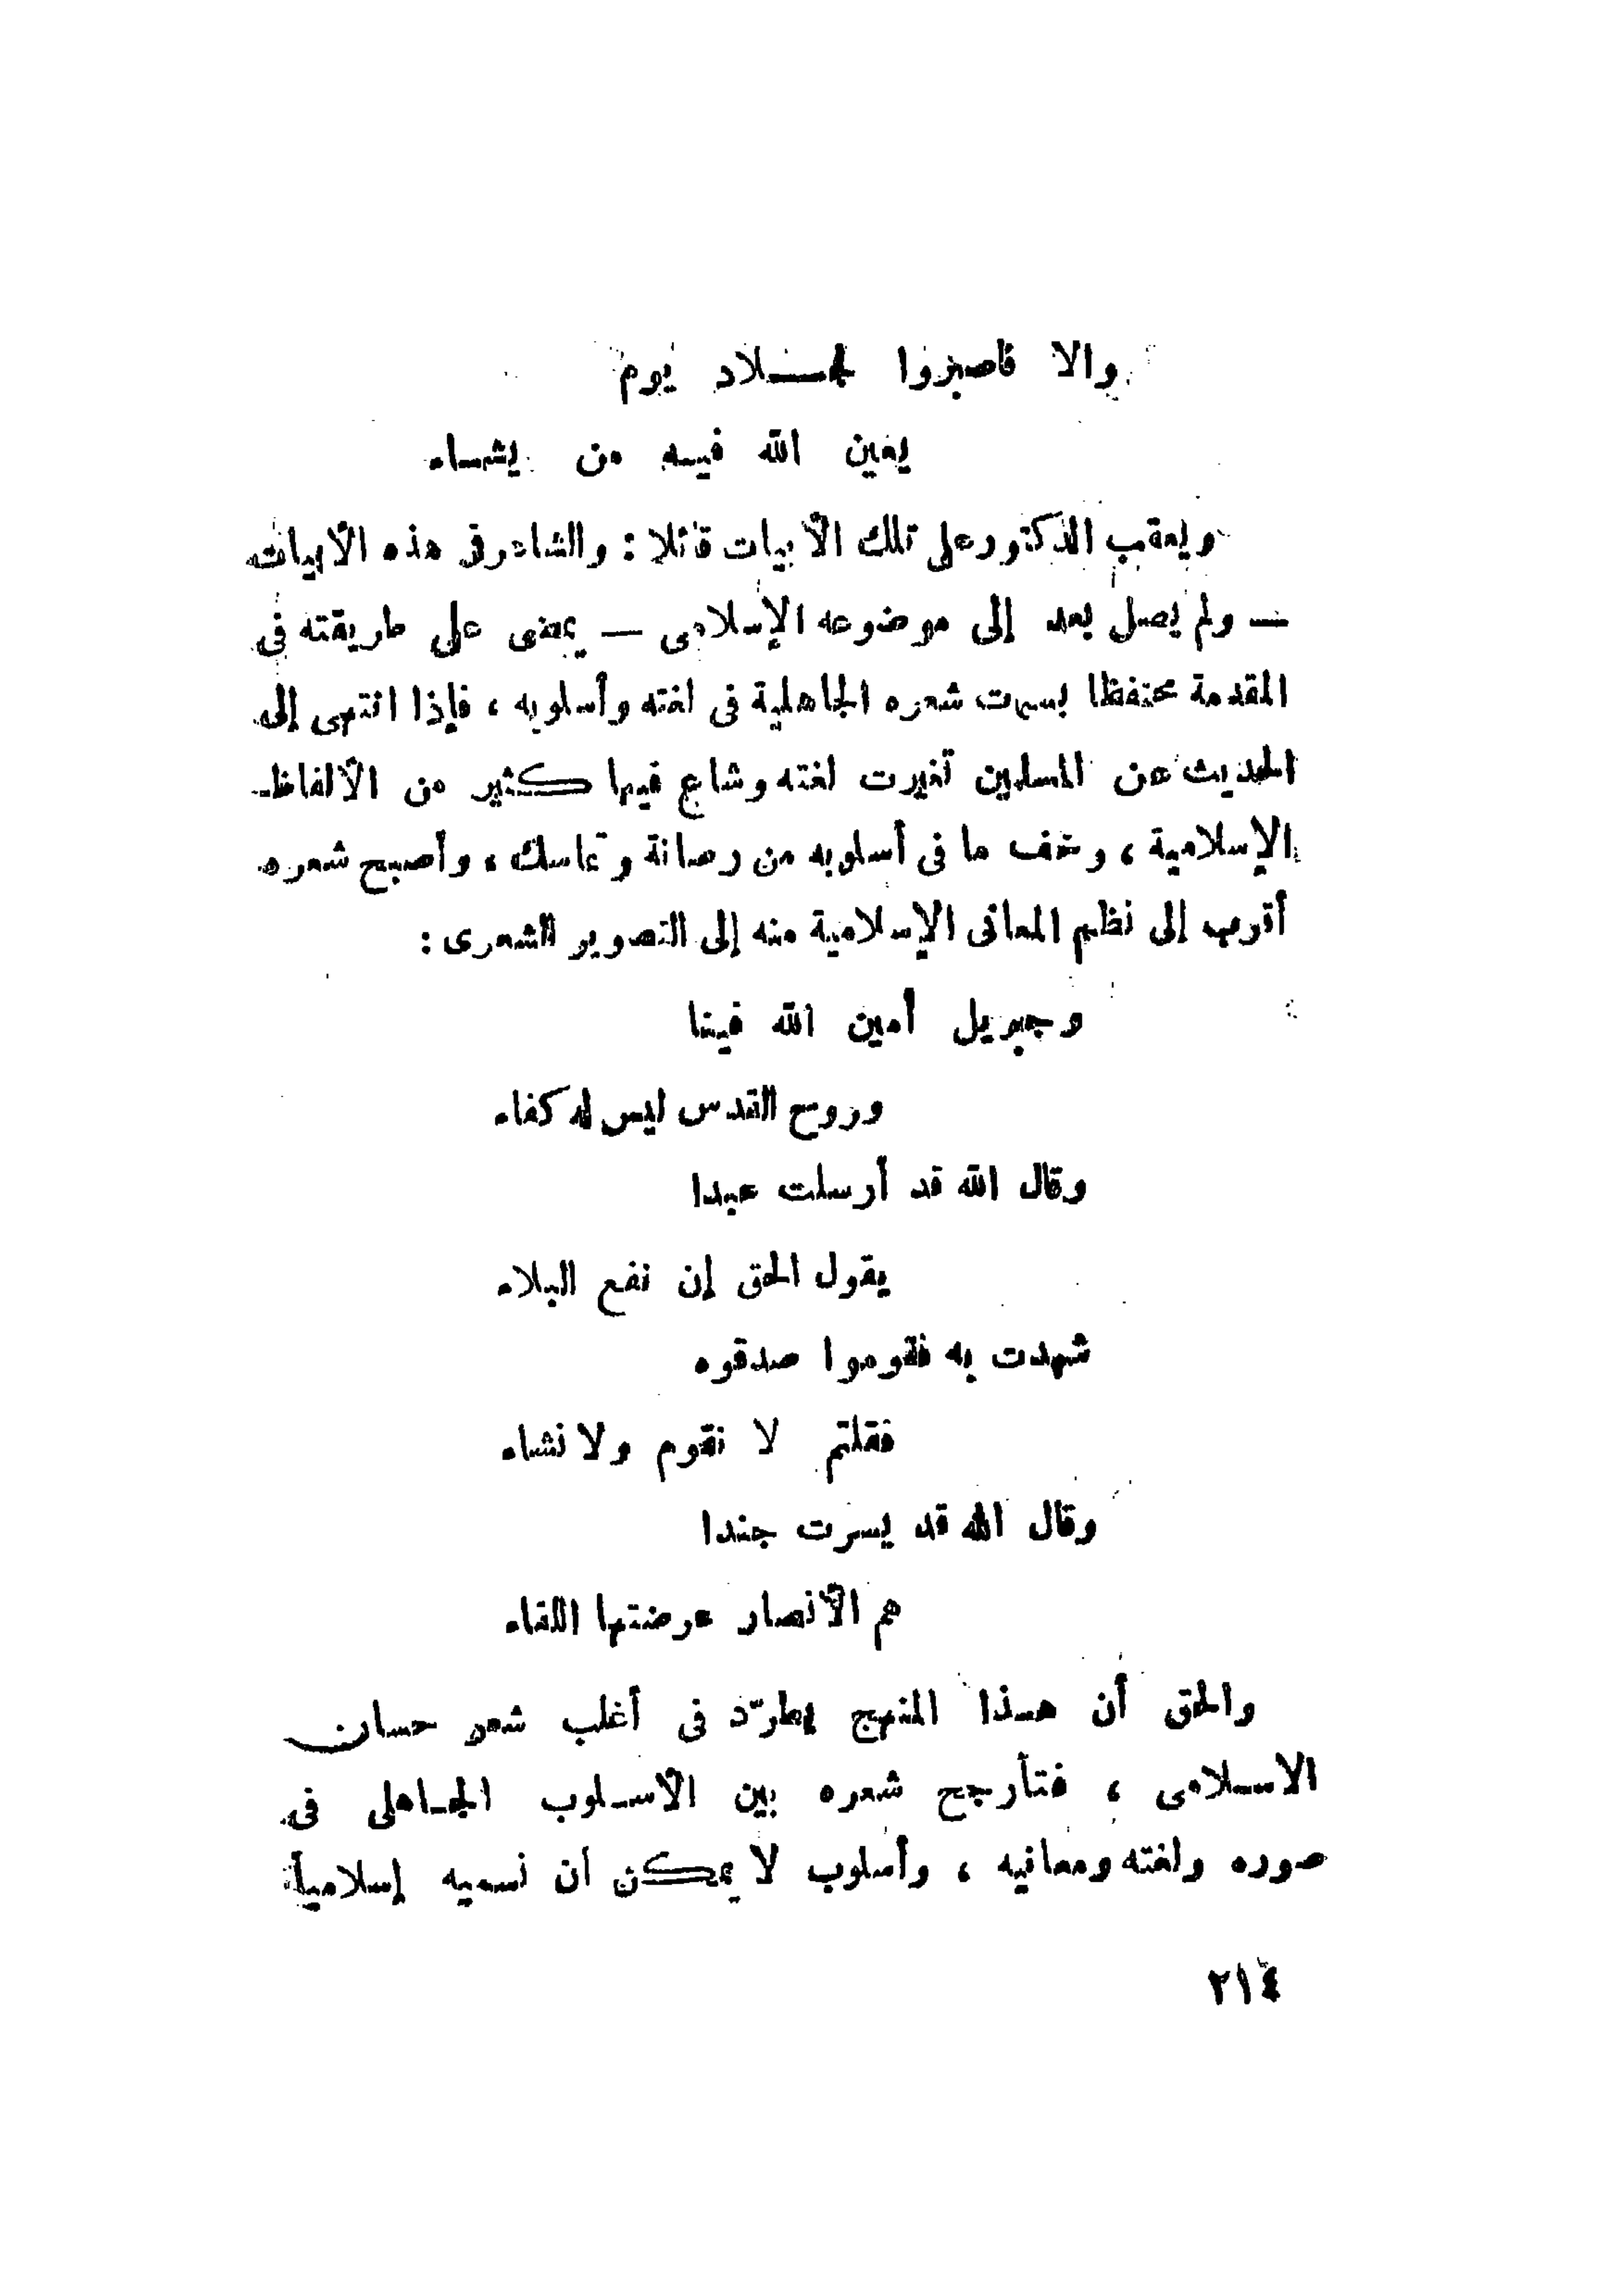 والا فاصبروا لجلاد يوم
يعين الله فيه من يشاء
ويعقب الدكتور على تلك الأبيات قائلا : والشاعر فى هذه الأبيات
— ولم يصل بعد إلى موضوعه الإسلامى — يمضى على طريقته فى
المقدمة محتفظا بسمات شعره الجاهلية فى لغته وأسلوبه ، فإذا انتهى إلى
الحديث عن المسلمين تغيرت لغته وشاع فيها كثير من الألفاظ
الإسلامية ، وخف ما فى أسلوبه من رصانة وتماسك ، وأصبح شعره
أقرب إلى نظم المعانى الإسلامية منه إلى التصوير الشعرى :
وجبريل أمين الله فينا
وروح القدس ليس له كفاء
وقال الله قد أرسلت عبدا
يقول الحق إن نفع البلاء
شهدت به فقوموا صدقوه
فقلتم لا نقوم ولا نشاء
وقال الله قد يسرت جندا
هم الأنصار عرضتها اللقاء
والحق أن هذا المنهج يطرّد فى أغلب شعر حسان
الاسلامى ، فتأرجح شعره بين الأسلوب الجاهلى فى
صوره ولغته ومعانيه ، وأسلوب لا يمكن أن نسميه إسلامياً
٢١٤